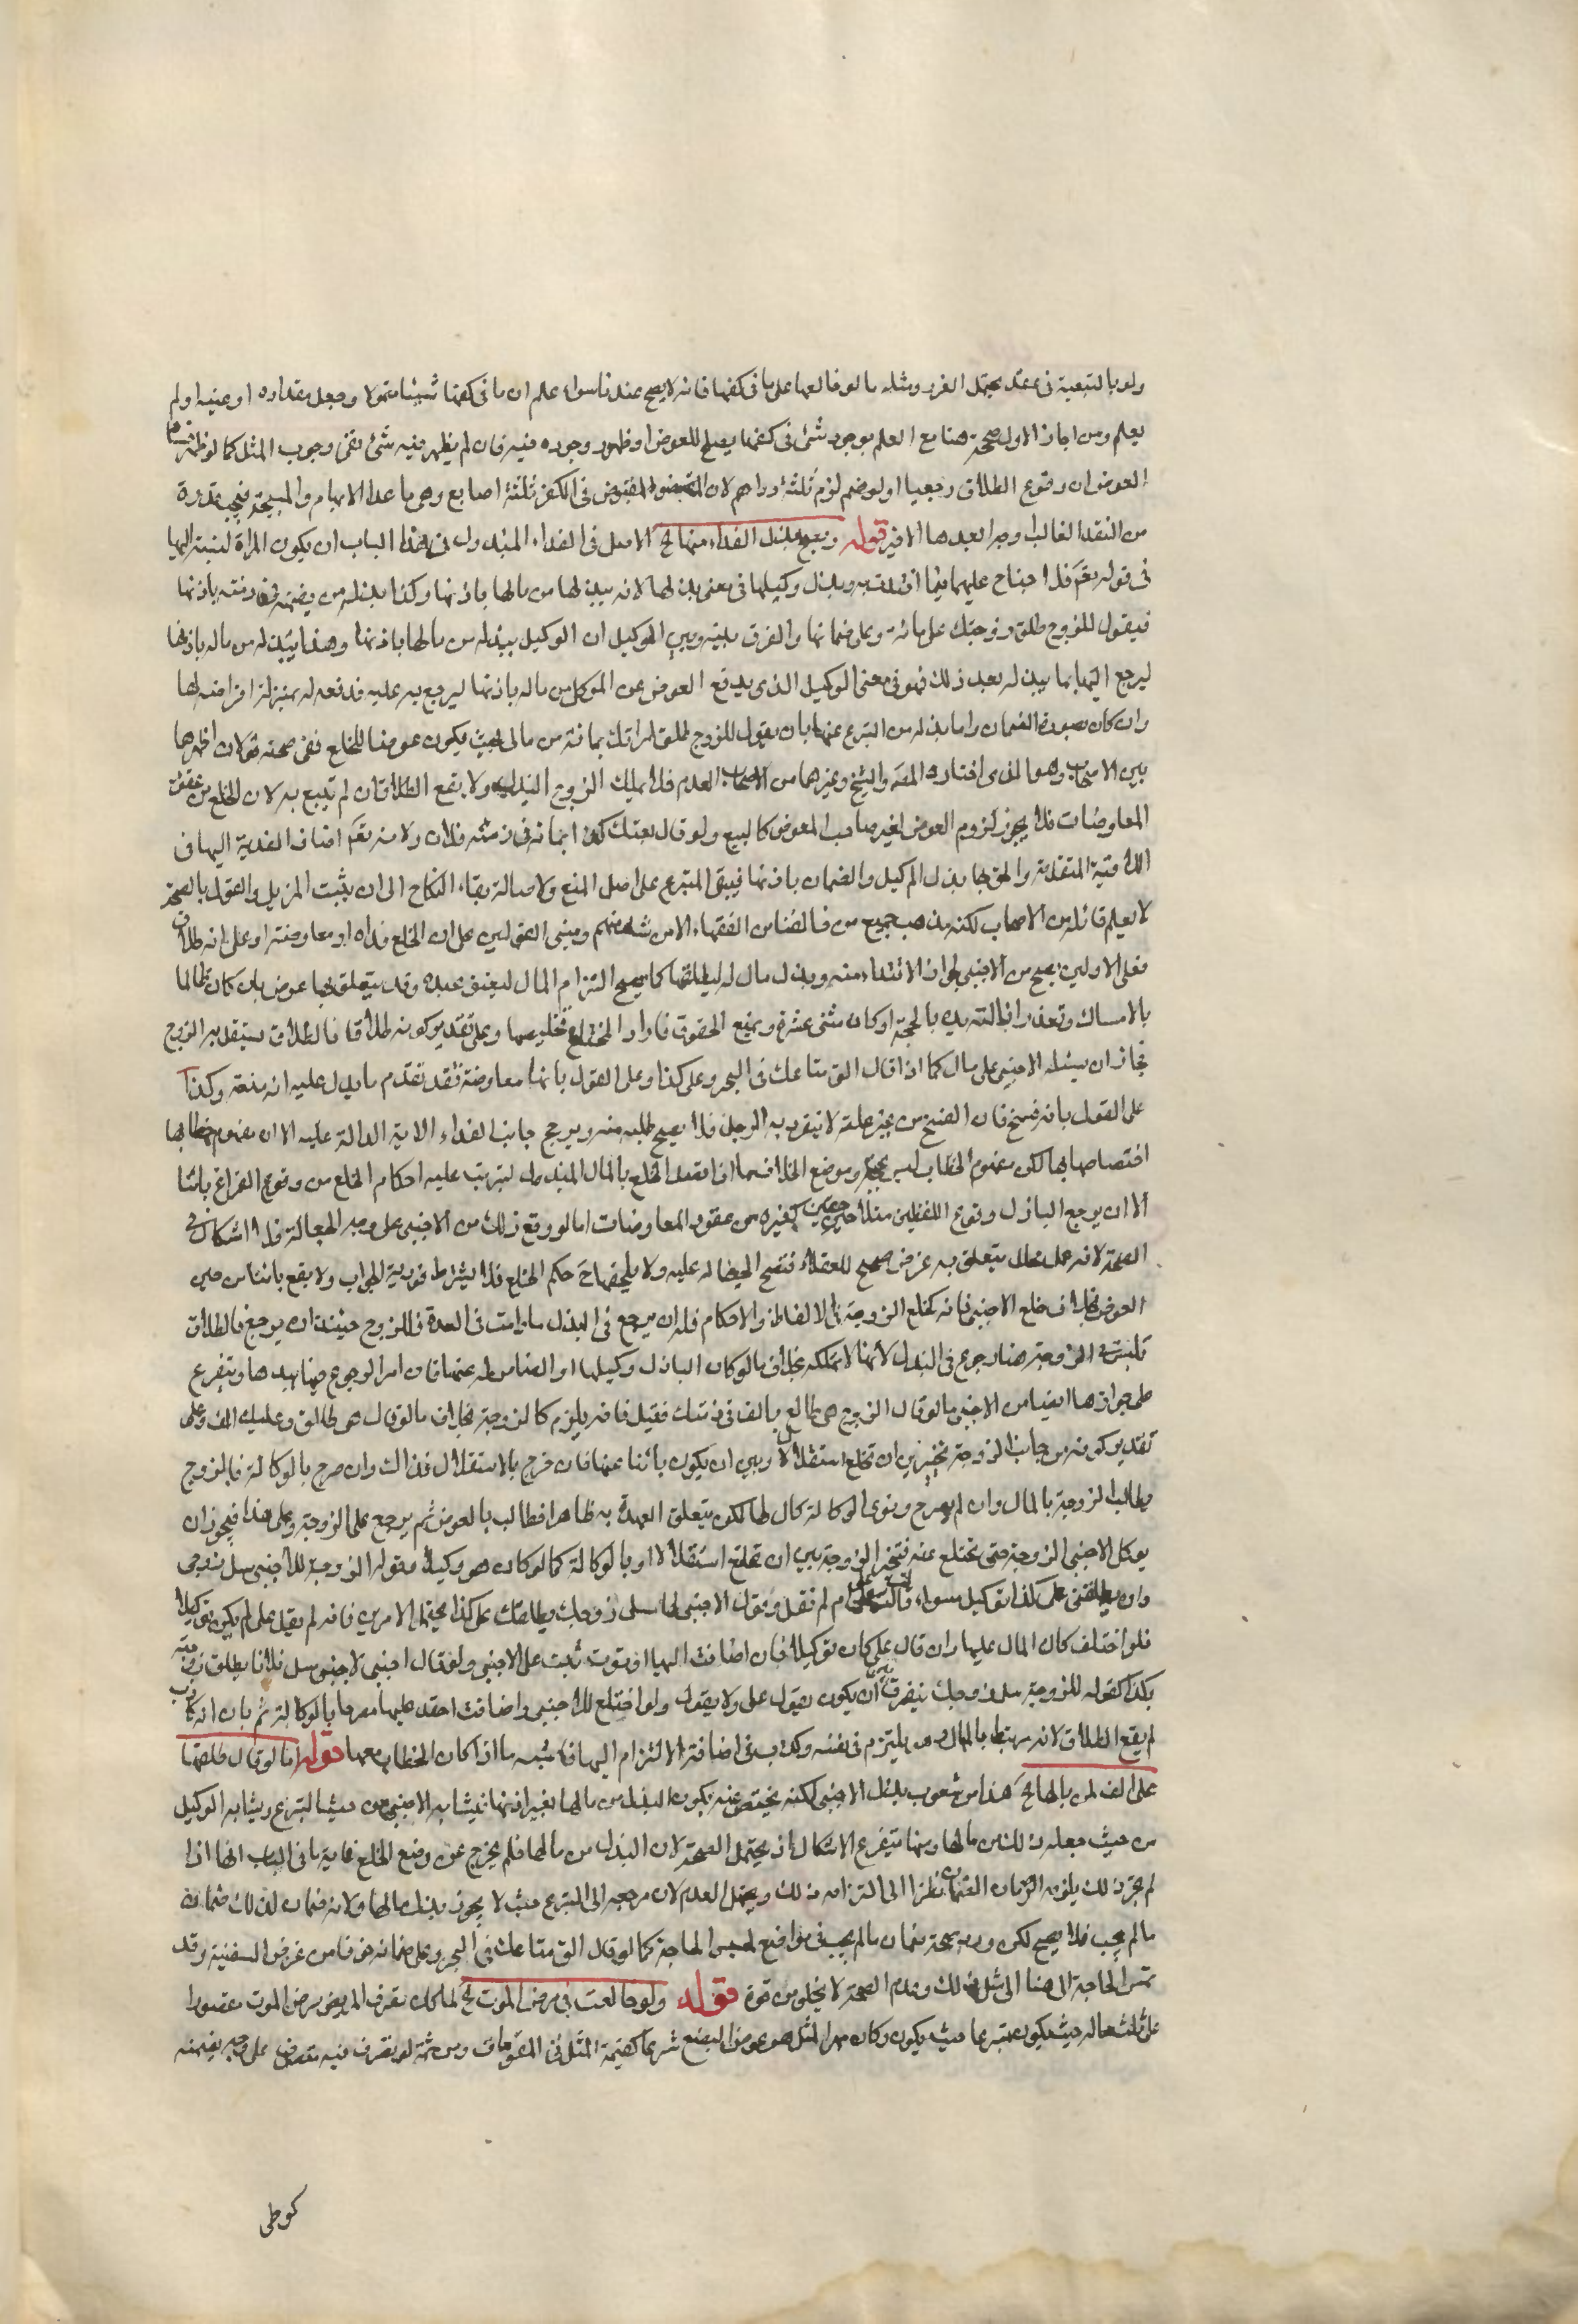 ولو بالتبعية في عقد يحتمل الغرر ومثله ما لو خالعها على ما في كفها فانه لا يصح عندنا سواء علم ان ما في كفها شيئا متمولا وجهل مقداره او عينه او لم
يعلم ومن اجاز الاول صححه هنا مع العلم بوجود شئ في كفها يصلح للعوض او ظهور وجوده فيه فان لم يظهر فيه شئ ففي وجوب المثل كما لو ظهر فساد
العوض او وقوع الطلاق رجعيا او لزوم ثلثة دراهم لان المقبوض في الكف ثلثة اصابع وهي ما عدا الابهام والمسبحة فيجب بقدره
من النقد الغالب اوجه ابعدها الاخير قوله ويصح بذل الفداء منها الخ الاصل في الفداء المبذول في هذا الباب ان يكون المراة لنسبته اليها
في قوله تعم فلا جناح عليهما فيما افتدت به وبذل وكيلها في معنى بذلها لانه يبذلها من مالها باذنها وكذا بذله من يضمنه في ذمته باذنها
فيقول للزوج طلق زوجتك على مائة وعلى ضمانها والفرق بينه وبين الوكيل ان الوكيل يبذله من مالها باذنها وهذا يبذله من ماله باذنها
ليرجع اليها بما يبذله بعد ذلك فهو في معنى الوكيل الذي يدفع العوض عن الموكل من ماله باذنها ليرجع به عليه فدفعه له بمنزلة اقراضه لها
وان كان بصورة الضمان واما بذله من المتبرع عنها بان يقول للزوج طلق امراتك بمائة من مالي بحيث يكون عوضا للخلع ففي صحته قولان اظهرهما
بين الاصحاب وهو الذي اختاره المصنف والشيخ وغيرهما من الاصحاب العدم فلا يملك الزوج البذل ولا يقع الطلاق ان لم يتبع به لان الخلع من عقود
المعاوضات فلا يجوز لزوم العوض لغير صاحب المعوض كالبيع ولو قال بعتك كذا بمائة في ذمة فلان ولانه تعم اضاف الفدية اليها في
الاية المتقدمة والحق بها بذل الوكيل والضمان باذنها فيبقى المتبرع على اصل المنع ولاصالة بقاء النكاح الى ان يثبت المزيل والقول بالصحة
لا يعلم قائله من الاصحاب لكنه مذهب جميع من خالفنا من الفقهاء الا من شذ منهم ومبنى القولين على ان الخلع فداء او معاوضة او على انه طلاق
فعلى الاولين يصح من الاجنبي لجواز الافتداء منه وبذل مال له ليطلقها كما يصح التزام المال ليعتق عبده وقد يتعلق بها عوض بان كان ظالما
بالامساك وتعذر ازالة يده بالحجة او كان يسئ عشرة ويمنع الحقوق فاراد المختلع تخليصها وعلى تقدير كونه طلاقا فالطلاق يستقل به الزوج
فجاز ان يسئله الاجنبي على مال كما اذا قال الق متاعك في البحر وعلي كذا وعلى القول بانها معاوضة فقد تقدم ما يدل عليه انه منعه وكذا
على القول بانه فسخ فان الفسخ من غير علة لا ينفرد به الرجل فلا يصح طلبه منه ويرجح جانب الفداء الاية الدالة عليه الا ان مفهوم خطابها
اختصاصها بها لكن مفهوم الخطاب ليس بحجة وموضع الخلاف ما اذا قصد الخلع بالمال المبذول ليترتب عليه احكام الخلع من وقوع الفراغ بائنا
الا ان يرجع الباذل ووقوع اللفظين متلاحقين كغيره من عقود المعاوضات اما لو وقع ذلك من الاجنبي على وجه الجعالة فلا اشكال في
الصحة لانه عمل محلل يتعلق به غرض صحيح للعقلاء فتصح الجعالة عليه ولا يلحقها ح حكم الخلع فلا يشترط فورية الجواب ولا يقع بائنا من حيث
العوض بخلاف خلع الاجنبي فانه كخلع الزوجة في الالفاظ والاحكام فله ان يرجع في البذل ما دامت في العدة فللزوج حينئذ ان يرجع في الطلاق
وليس للزوجة هنا رجوع في البذل لانها لا تملكه بخلاف ما لو كان الباذل وكيلها او الضامن له عنها فان امر الرجوع فيها بيدها ويتفرع
على جوازها ايضا من الاجنبي ما لو قال الزوج هي طالع بالف في ذمتك فقبل فانه يلزم كالزوجة بخلاف ما لو قال هي طالق وعليك الف وعلى
تقدير كونه من جانب الزوجة يتخير بين ان تختلع استقلالا وبين ان يكون نائبا عنها فان خرج بالاستقلال فذاك وان صرح بالوكالة فالزوج
يطالب الزوجة بالمال وان لم يصرح ونوى الوكالة كان لها لكن يتعلق العهدة به ظاهرا فطالب بالعوض ثم يرجع على الزوجة وعلى هذا فيجوز ان
يوكل الاجنبي الزوجة حتى تختلع عنه فتتخير الزوجة بين ان تختلع استقلالا او بالوكالة كما لو كان هو وكيلا وقول الزوجة للاجنبي سل زوجي
وان يطلقني على كذا توكيل سواء قالت علي ام لم تقل وقول الاجنبي لها سلي زوجك يطلقك على كذا يحتمل الامرين فانه لم يقل علي لم يكن توكيلا
فلو اختلف كان المال عليها وان قال علي كان توكيلا فان اضافت اليها او نوت ثبت على الاجنبي ولو قال اجنبي لاجنبي سل فلانا يطلق زوجته
بكذا كقوله للزوجة سلي زوجك فيفرق بين ان يكون يقول علي ولا يقول ولو اختلع للاجنبي واضافت العقد عليها مصرحا بالوكالة ثم بان انه كاذب
لم يقع الطلاق لانه مرتبط بالمال وهو لم يلتزم في نفسه وكذب في اضافة الالتزام اليها فاشبه ما اذا كان الخطاب معها قوله اما لو قال طلقها
على الف من مالها الخ هذا من شعوب بذل الاجنبي لكنه يختص عنه بكون البذل من مالها بغير اذنها فيشابه الاجنبي من حيث التبرع ويشابه الوكيل
من حيث جعله ذلك من مالها ومنها يتفرع الاشكال اذ يحتمل الصحة لان البذل من مالها فلم يخرج عن وضع الخلع غاية ما في الباب انها اذا
لم تجز ذلك يلزمه الضمان نظرا الى التزامه ذلك ويحتمل العدم لان مرجعه الى التبرع حيث لا يجوز بذل مالها ولانه ضمان لذلك ضمانه
ما لم يجب فلا يصح لكن ورد بصحة ضمان ما لم يجب في مواضع لمسيس الحاجة كما لو قال الق متاعك في البحر وعلي ضمانه خوفا من غرض السفينة وقد
تمس الحاجة الى هنا الى مثل ذلك وعدم الصحة لا يخلو من قوة قوله ولو خالعت في مرض الموت الخ لما كان تصرف المريض مرض الموت مقصورا
على ثلث ماله حيث يكون متبرعا حيث يكون وكان مهر المثل هو عوض البضع شرعا كقيمة المثل في المقومات ومن ثمة لو تصرف فيه متصرف على وجه يضمنه
كوطى